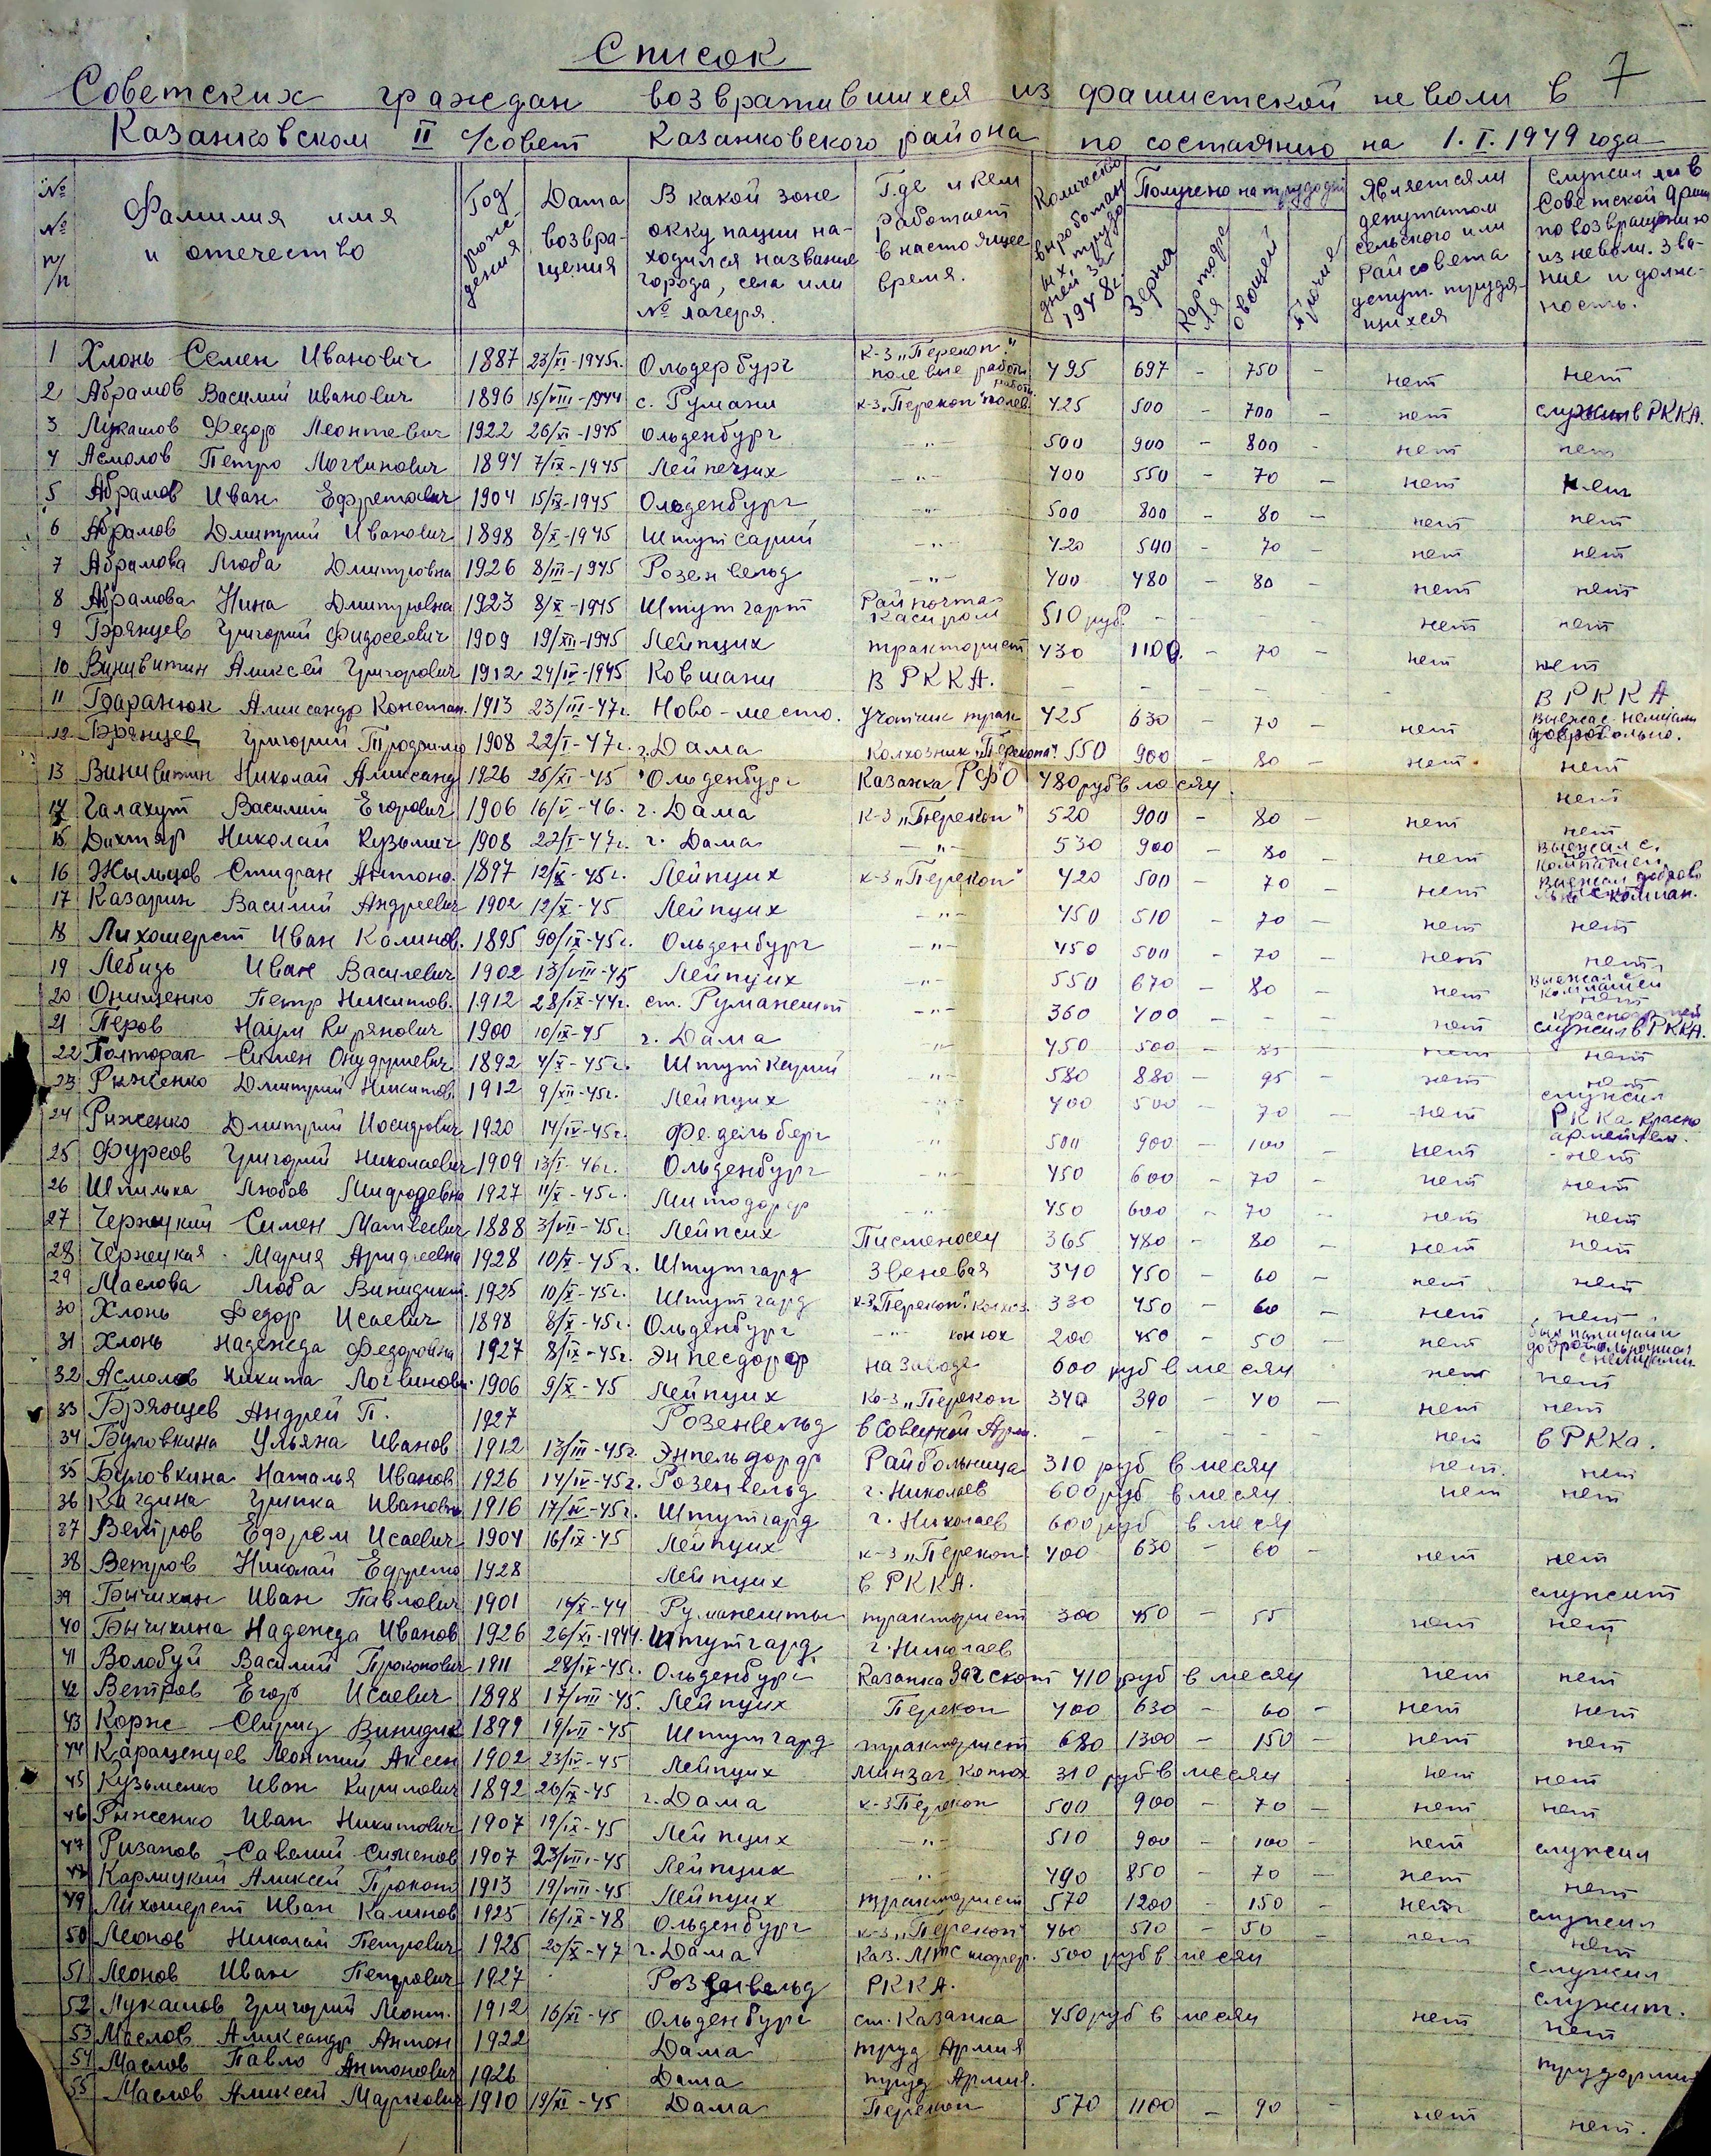 Список
7
Советских граждан возвратившихся из фашистской неволи в
Казанковском II с/совет Казанковского района по состоянию на 1.I.1949 года
№ № п/п
Фамилия имя и отечество
Год рождения
Дата возвращения
В какой зоне оккупации находился название города, села или № лагеря.
Где и кем работает в настоящее время.
Количество выработаных трудодней за 1948 г.
Получено на трудодни
Зерна
Картофеля
Овощей
Прочие
Является ли депутатом сельского или Райсовета депут. трудящихся
Служил ли в Советской Арми по возвращению из неволи. Звание и должность.
1 Хлонь Семен Иванович 1887 23/XI-1945г. Ольдербург к-з „Перекоп" полевые работы 495 697 - 750 - нет нет
2 Абрамов Василий Иванович 1896 15/VIII-1944 с. Румани к-з „Перекоп" полев. работы 425 500 - 700 - нет служил в РККА.
3 Лукашов Федор Леонтевич 1922 26/XI-1945 Ольденбург -"- 500 900 - 800 - нет нет
4 Асмолов Петро Логвинович 1894 7/IX-1945 Лейпецих -"- 400 550 - 70 - нет нет
5 Абрамов Иван Ефремович 1904 15/IX-1945 Ольденбург -"- 500 800 - 80 - нет нет
6 Абрамов Дмитрий Иванович 1898 8/X-1945 -"- 420 540 - 70 - нет нет
7 Абрамова Люба Дмитровна 1926 8/III-1945 Розенвельд -"- 400 480 - 80 - нет нет
8 Абрамова Нина Дмитровна 1923 8/X-1945 Штутгарт Райпочта касиром 510 руб. - - - - нет нет
9 Брянцев Григорий Фидосеевич 1909 19/XII-1945 Лейпцих тракторист 430 1100. - 70 - нет нет
10 Винивитин Аликсей Григорович 1912 24/IV-1945 Ковшани В РККА. - - - - - - В РККА
11 Баранюк Александр Констан. 1913 23/III-47г. Ново-место. Учотчик трак 425 630 - 70 - нет выежал с немцами добровольно.
12 Брянцев Григорий Трофимо 1908 22/I-47г. г. Дама Колхозник „Перекопа". 550 900 - 80 - нет. нет
13 Винивитин Николай Александ 1926 25/XI-45 Ольденбург Казанка РФО 480 руб в месяц. нет
14 Галахут Василий Егорович 1906 16/V-46. г. Дама к-з „Перекоп" 520 900 - 80 - нет нет
15 Дихтяр Николай Кузьмич 1908 22/I-47г. г. Дама -"- 530 900 - 80 - нет выежал с
16 Жыльцов Стифан Антоно. 1897 12/X-45г. Лейпцих к-з „Перекоп" 420 500 - 70 - нет выежал доброво
17 Казарин Василий Андреевич 1902 12/X-45 Лейпцих -"- 450 510 - 70 - нет нет
18 Лихошерст Иван Калинов. 1895 Ольденбург -"- 450 500 - 70 - нет нет
19 Лебидь Иван Василевич 1902 13/VIII-45 Лейпцих -"- 550 670 - 80 - нет выежал с
20 Онищенко Петр Никитов. 1912 28/IX-44г. ст. -"- 360 400 - - - нет служил в РККА.
21 Перов Наум Кирянович 1900 10/IX-45 г. Дама -"- 450 500 - - нет нет
22 Полторак Симен 1892 4/X-45г. -"- 580 880 - 95 - нет нет
23 Риженко Дмитрий Никитов. 1912 9/XII-45г. Лейпцих -"- 400 500 - 70 - нет служил
24 Риженко Дмитрий Иосифович 1920 14/IV-45г. Федельберг -"- 500 900 - 100 - нет РККА красно армейцем.
25 Фурсов Григорий Николаевич 1909 13/I-46г. Ольденбург -"- 450 600 - 70 - нет нет
26 Шпилька Любов 1927 11/X-45г. -"- 450 600 - 70 - нет нет
27 Чернецкий Симен Матвеевич 1888 3/VII-45г Лейпсих Писменосец 365 480 - 80 - нет нет
28 Чернецкая Мария 1928 10/X-45г. Штутгард Звеневая 340 450 - 60 - нет нет
29 Маслова Люба 1925 10/X-45г. Штутгард к-з „Перекоп" колхоз. 330 450 - 60 - нет нет
30 Хлонь Федор Исаевич 1898 8/X-45г. Ольденбург -"- конюх 200 450 - 50 - нет
31 Хлонь Надежда Федоровна 1927 8/IX-45г. на заводе 600 руб в месяц нет нет
32 Асмолов Никита Логвинови 1906 9/X-45 Лейпцих Ко-з „Перекоп 340 390 - 40 - нет нет
33 Брянцев Андрей П. 1927 Розенвельд в Совецкой Арми. - - - - - нет в РККа.
34 Буловкина Ульяна Иванов 1912 13/III-45г. Энпельдорф Райбольница 310 руб в месяц нет. нет
35 Буловкина Наталья Иванов 1926 14/IV-45г. Розенвельд г. Николаев 600 руб в месяц. нет нет
36 Иванови 1916 17/IV-45г. Штутгард г. Николаев 600 руб в месяц
37 Ветров Ефрем Исаевич 1904 16/IX-45 Лейпцих к-з „Перекоп" 400 630 - 60 - нет нет
38 Ветров Николай Ефремо 1928 Лейпцих в РККА. служит
39 Бычихин Иван Павлович 1901 Руманешты тракторист 300 450 - 55 нет нет
40 Бычихина Надежда Иванов 1926 26/XI-1944. Штутгард. г. Николаев
41 Волобуй Василий Прокопович 1911 28/IX-45г. Ольденбург Казанка Загскот 410 руб в месяц нет нет
42 Ветров Егор Исаевич 1898 17/VIII-45. Лейпцих Перекоп 400 630 - 60 - нет нет
43 Корж Свирид Винидик 1899 19/VII-45 Штутгард тракторист 680 1300 - 150 - нет нет
44 Караценцев Леонтий Аксен 1902 23/IV-45 Лейпцих Минзаг Конюх 310 руб в месяц нет нет
45 Кузьменко Иван Кирилович 1892 20/X-45 г. Дама к-з Перекоп 500 900 - 70 - нет нет
46 Риженко Иван Никитович 1907 19/IX-45 Лейпцих -"- 510 900 - 100 - нет служил
47 Ризанов Савелий Сименов 1907 23/VIII-45 Лейпцих -"- 490 850 - 70 - нет нет
48 Карлицкий Аликсей Прокоп 1913 19/VIII-45 Лейпцих тракторист 570 1200 - 150 - нет служил
49 Лихошерст Иван Калинов 1925 16/IX-48 Ольденбург к-з „Перекоп" 460 510 - 50 - нет нет
50 Леонов Николай Петрович 1925 20/X-47 г. Дама Каз. МТС шофер. 500 руб в месяц служил
51 Леонов Иван Петрович 1927 Розенвельд РККА. служит.
52 Лукашов Григорий Леонт. 1912 16/XI-45 Ольденбург ст. Казанка 450 руб в месяц нет нет
53 Маслов Аликсандр Антон 1922 Дама труд Армия
54 Маслов Павло Антонович 1926 Дама труд Армия. трудармия
55 Маслов Аликсей Маркович 1910 19/XI-45 Дама Перекоп 570 1100 - 90 - нет нет.